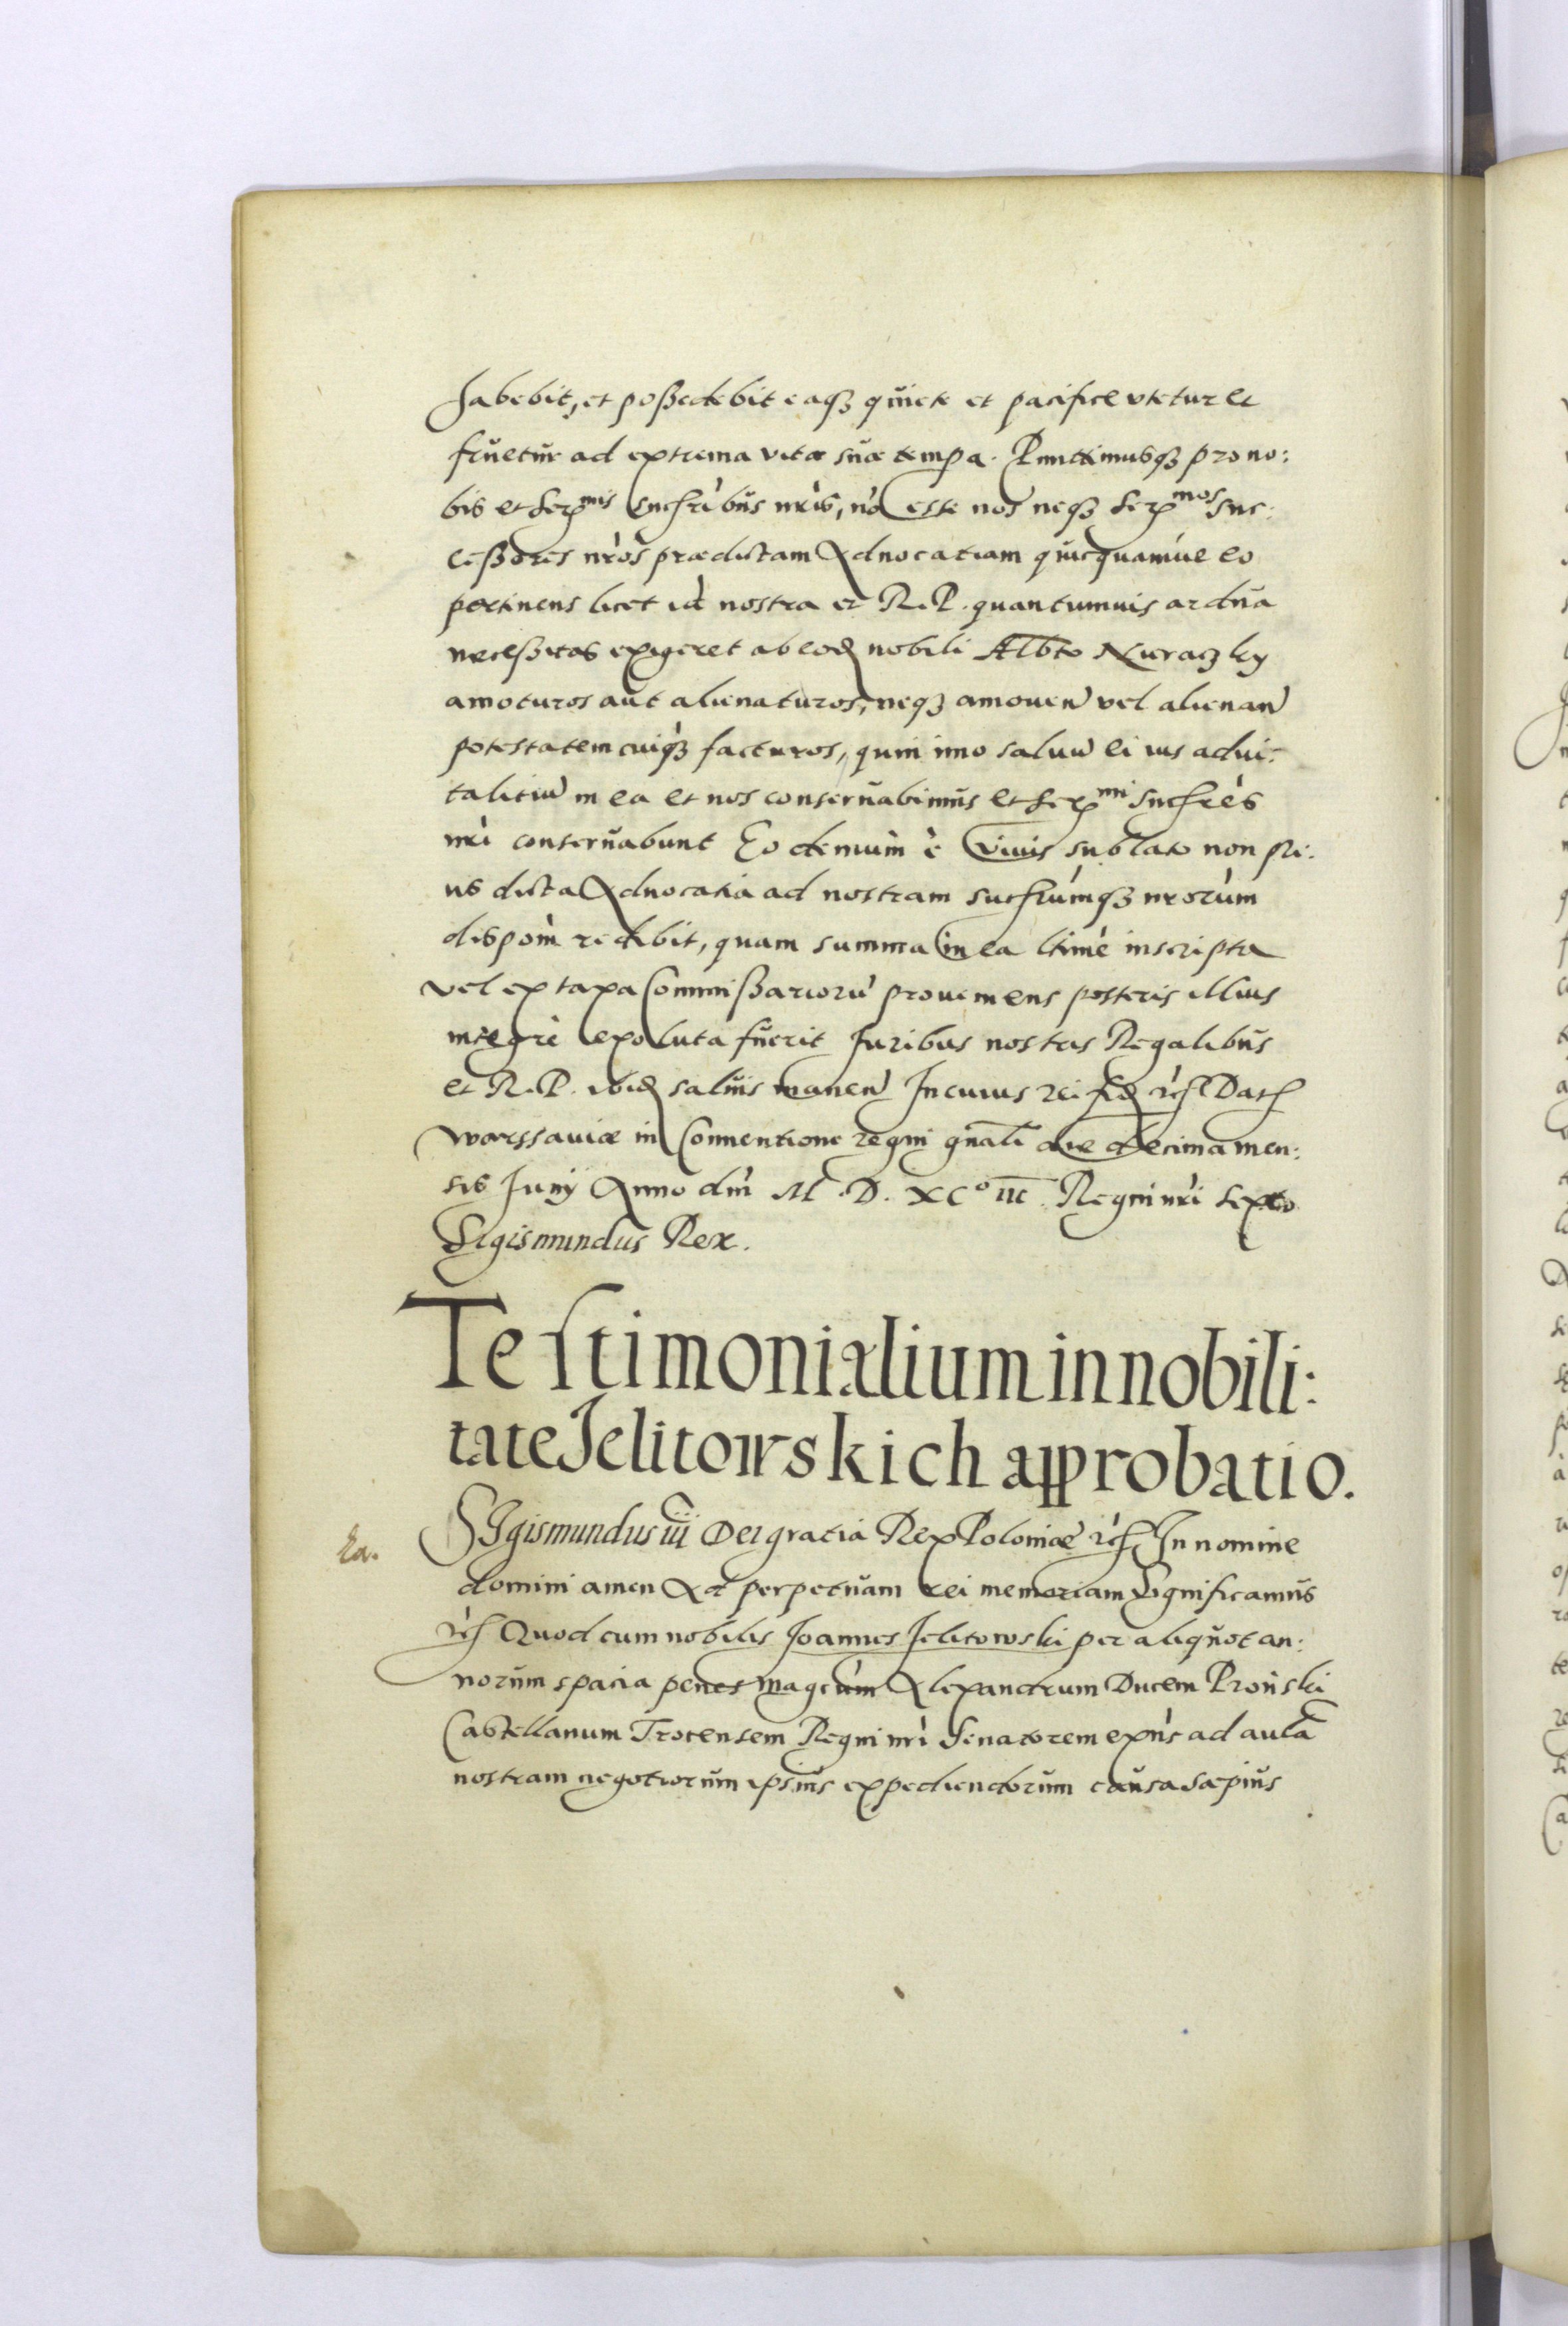 habebit, et possedebit eaqȝ quiete et pacifice utetur et
fruetur ad extrema vitæ suæ tempa. Pmittimusqȝ pro no:
bis et Ser^mis Sucsribus nris, nō esse nos neqȝ Ser^mos Suc:
cessores nros prædictam Aduocatiam quicquamúe eo
pertinens licet id nostra et R.P. quantumuis ardua
necessitas exigeret ab eod nobili Albto
amoturos aut alienaturos, neqȝ amouen vel alienan
potestatem cuiqȝ facturos, quin imo saluū ei ius advi:
talitiū in ea et nos conseruabimus et Ser^mi Sucsres
nri conseruabunt Eo demum è vivis sublato non pri:
us dicta Aduocatia ad nostram sucsrumqȝ nrorum
dispoñ redibit, quam summa in ea ltime inscripta
vel ex taxa Commissariorū proueniens posteris illius
integrè exoluta fuerit Iuribus nostris Regalibus
et R.P. ibid saluis manen In cuius rei fid rc Dat
Warssauiæ in Conuentione regni gnali die decima men:
sis Iunij Anno dni M.D.XC° iii. Regni nri Sexto
Sigismundus Rex.
Testimonialium in nobili:
tate Jelitowskich approbatio.
Ra. SIgismundus iii Dei gratia Rex Poloniæ rc In nomine
domini amen Ad perpetuam rei memoriam Significamus
rc Quod cum nobilis Joannes Jelitowski per aliquot an:
norum spacia penes magcum Alexandrum Ducem Pronski
Castellanum Trocensem Regni nri Senatorem exñs ad aulā
nostram negotiorum ipsius expediendorum causa sæpius